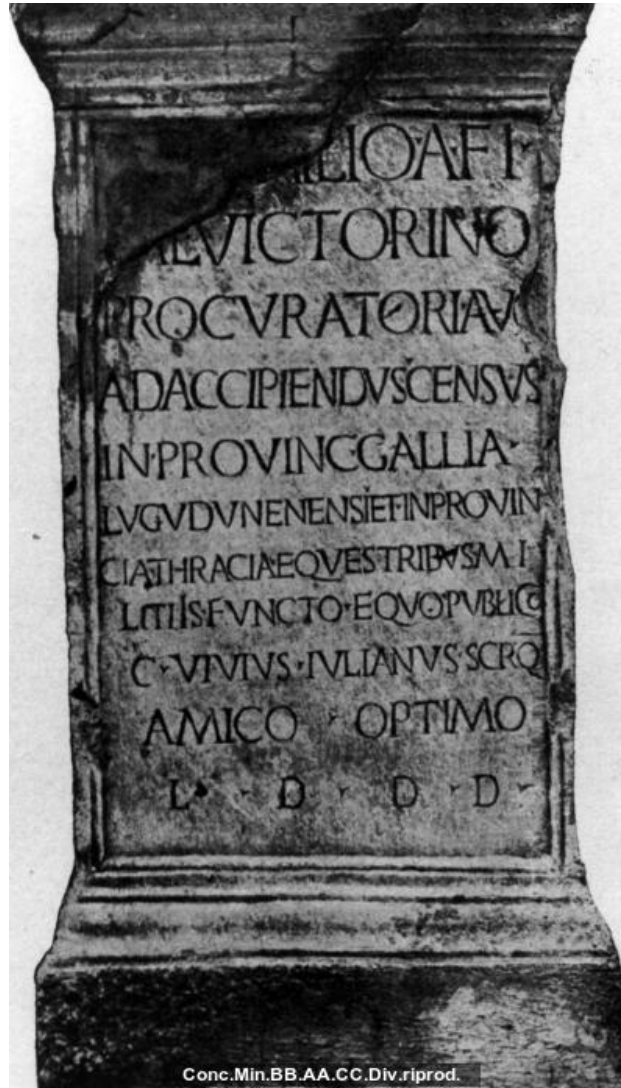 ILIO·A·F I
VICTORINO
PROCVRATORI·AVG
AD ACCIPIENDVS CENSVS
IN·PROVINC·GALLIA
LVGVDVNENENSI ET·IN PROVIN
CIA·THRACIA·EQVESTRIBVS MI
LITIIS·FVNCTO·EQVO PVBLICO
C·VIVIVS·IVLIANVS·SCR Q
AMICO·OPTIMO
L·D·D·D·
Conc.Min.BB.AA.CC.Div.riprod.